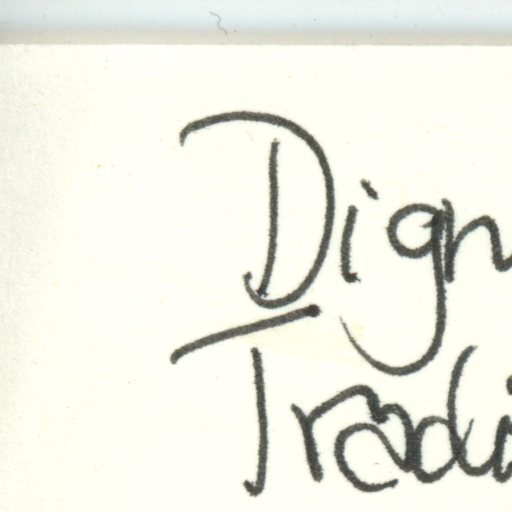 Dign
Tradi